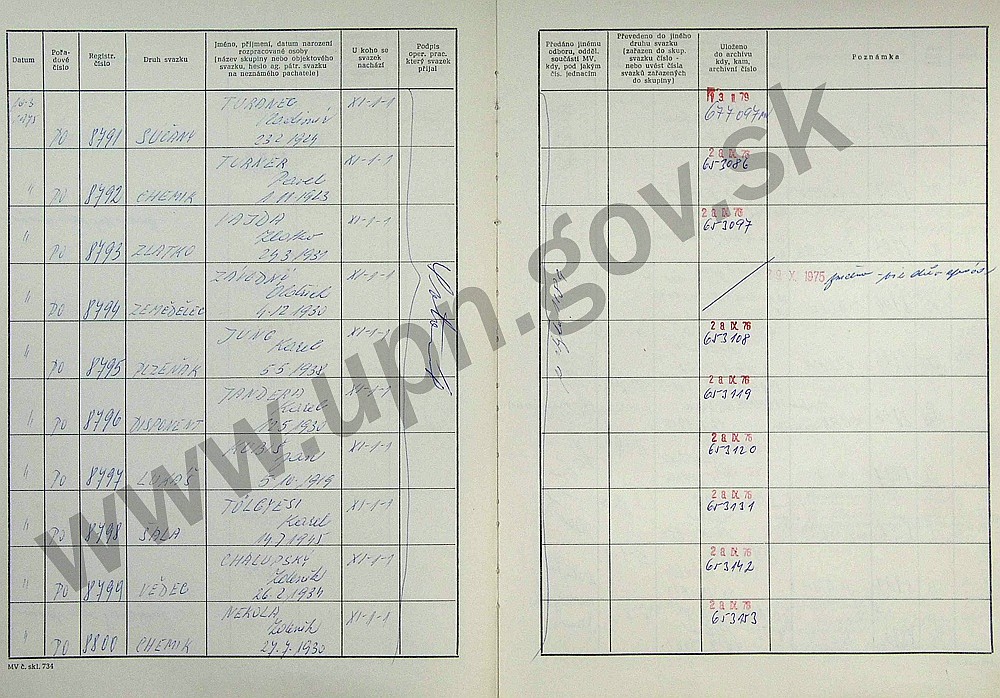 Datum
Pořa-
dové
číslo
Registr.
číslo
Druh svazku
Jméno, příjmení, datum narození
rozpracované osoby
(název skupiny nebo objektového
svazku, heslo ag. pátr. svazku
na neznámého pachatele)
U koho se
svazek
nachází
Podpis
oper. prac.
který svazek
přijal
Předáno jinému
odboru, odděl.
součásti MV,
kdy, pod jakým
čís. jednacím
Převedeno do jiného
druhu svazku
(zařazen do skup.
svazku číslo -
nebo uvést čísla
svazků zařazených
do skupiny)
Uloženo
do archivu
kdy, kam,
archivní číslo
Poznámka
1975 PO 8791 SUČANY
TURONEC
Vladimír
23 2 1924
XI-1-1
3 II 79
" PO 8792 CHEMIK
TURNER
Pavel
1.11.1923
XI-1-1
2 8. IX. 76
653086
" PO 8793 ZLATKO
VAJDA
Zlatko
XI-1-1
2 8. IX. 76
653097
" PO 8794 ZEMĚDĚLEC
ZÁVODNÝ
Oldřich
4.12.1930
XI-1-1
X. 1975
" PO 8795 PLZEŇÁK
JUNG
Karel
5 5.1938
XI-1-1
2 8. IX. 76
653108
" PO 8796 DISPONENT
Karel
5 1930
XI-1-1
2 8. IX. 76
653119
" PO 8797 LUKÁŠ
5 10.1919
XI-1-1
2 8. IX. 76
653120
" PO 8798 ŠALA
TÖLGYESI
Karel
14.7.1945
XI-1-1
2 8. IX. 76
653131
" PO 8799 VĚDEC
CHALUPSKÝ
Zdeněk
26.2.1934
XI-1-1
2 8. IX. 76
653142
" PO 8800 CHEMIK
NEKOLA
Zdeněk
27.7.1930
XI-1-1
2 8. IX. 76
653153
MV č. skl. 734
www.upn.gov.sk